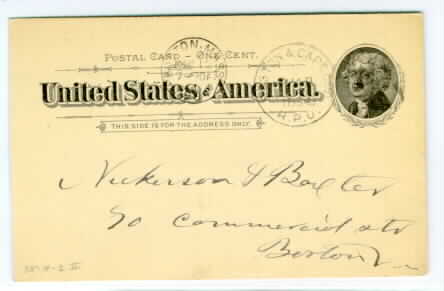 POSTAL CARD – ONE CENT.
United States of America.
THIS SIDE IS FOR THE ADDRESS ONLY.
BOSTON & CAPE
R.P.O.
Nickerson & Baxter
90 Commercial str
Boston